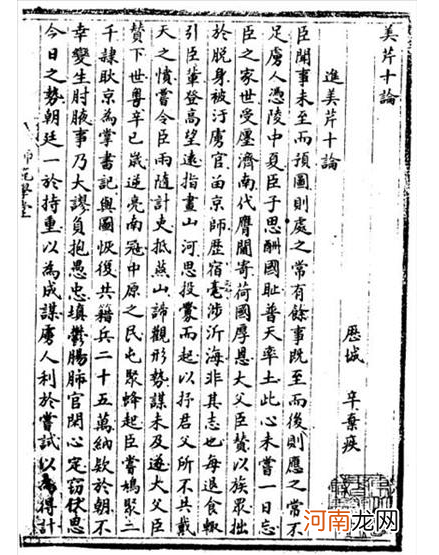 美芹十論
歷城 辛棄疾
進美芹十論
臣聞事未至而預圖則處之常有餘事既至而後則應之常不
足虜人憑陵中夏臣子思酬國恥普天率土此心未嘗一日忘
臣之家世受廛濟南代膺閫寄荷國厚恩大父臣贊以族眾拙
於脫身被汙虜官留京師歷宿亳涉沂海非其志也每退食輒
引臣輩登高望遠指畫山河思投釁而起以紓君父所不共戴
天之憤嘗令臣兩隨計吏抵燕山諦觀形勢謀未及遂大父臣
贊下世粵辛巳歲逆亮南寇中原之民屯聚蜂起臣嘗鳩眾二
千隸耿京為掌書記與圖恢復共籍兵二十五萬納款於朝不
幸變生肘腋事乃大謬負抱愚忠填鬱腸肺官閑心定竊伏思
今日之勢朝廷一於持重以為成謀虜人利於嘗試以為得計
河南龙网